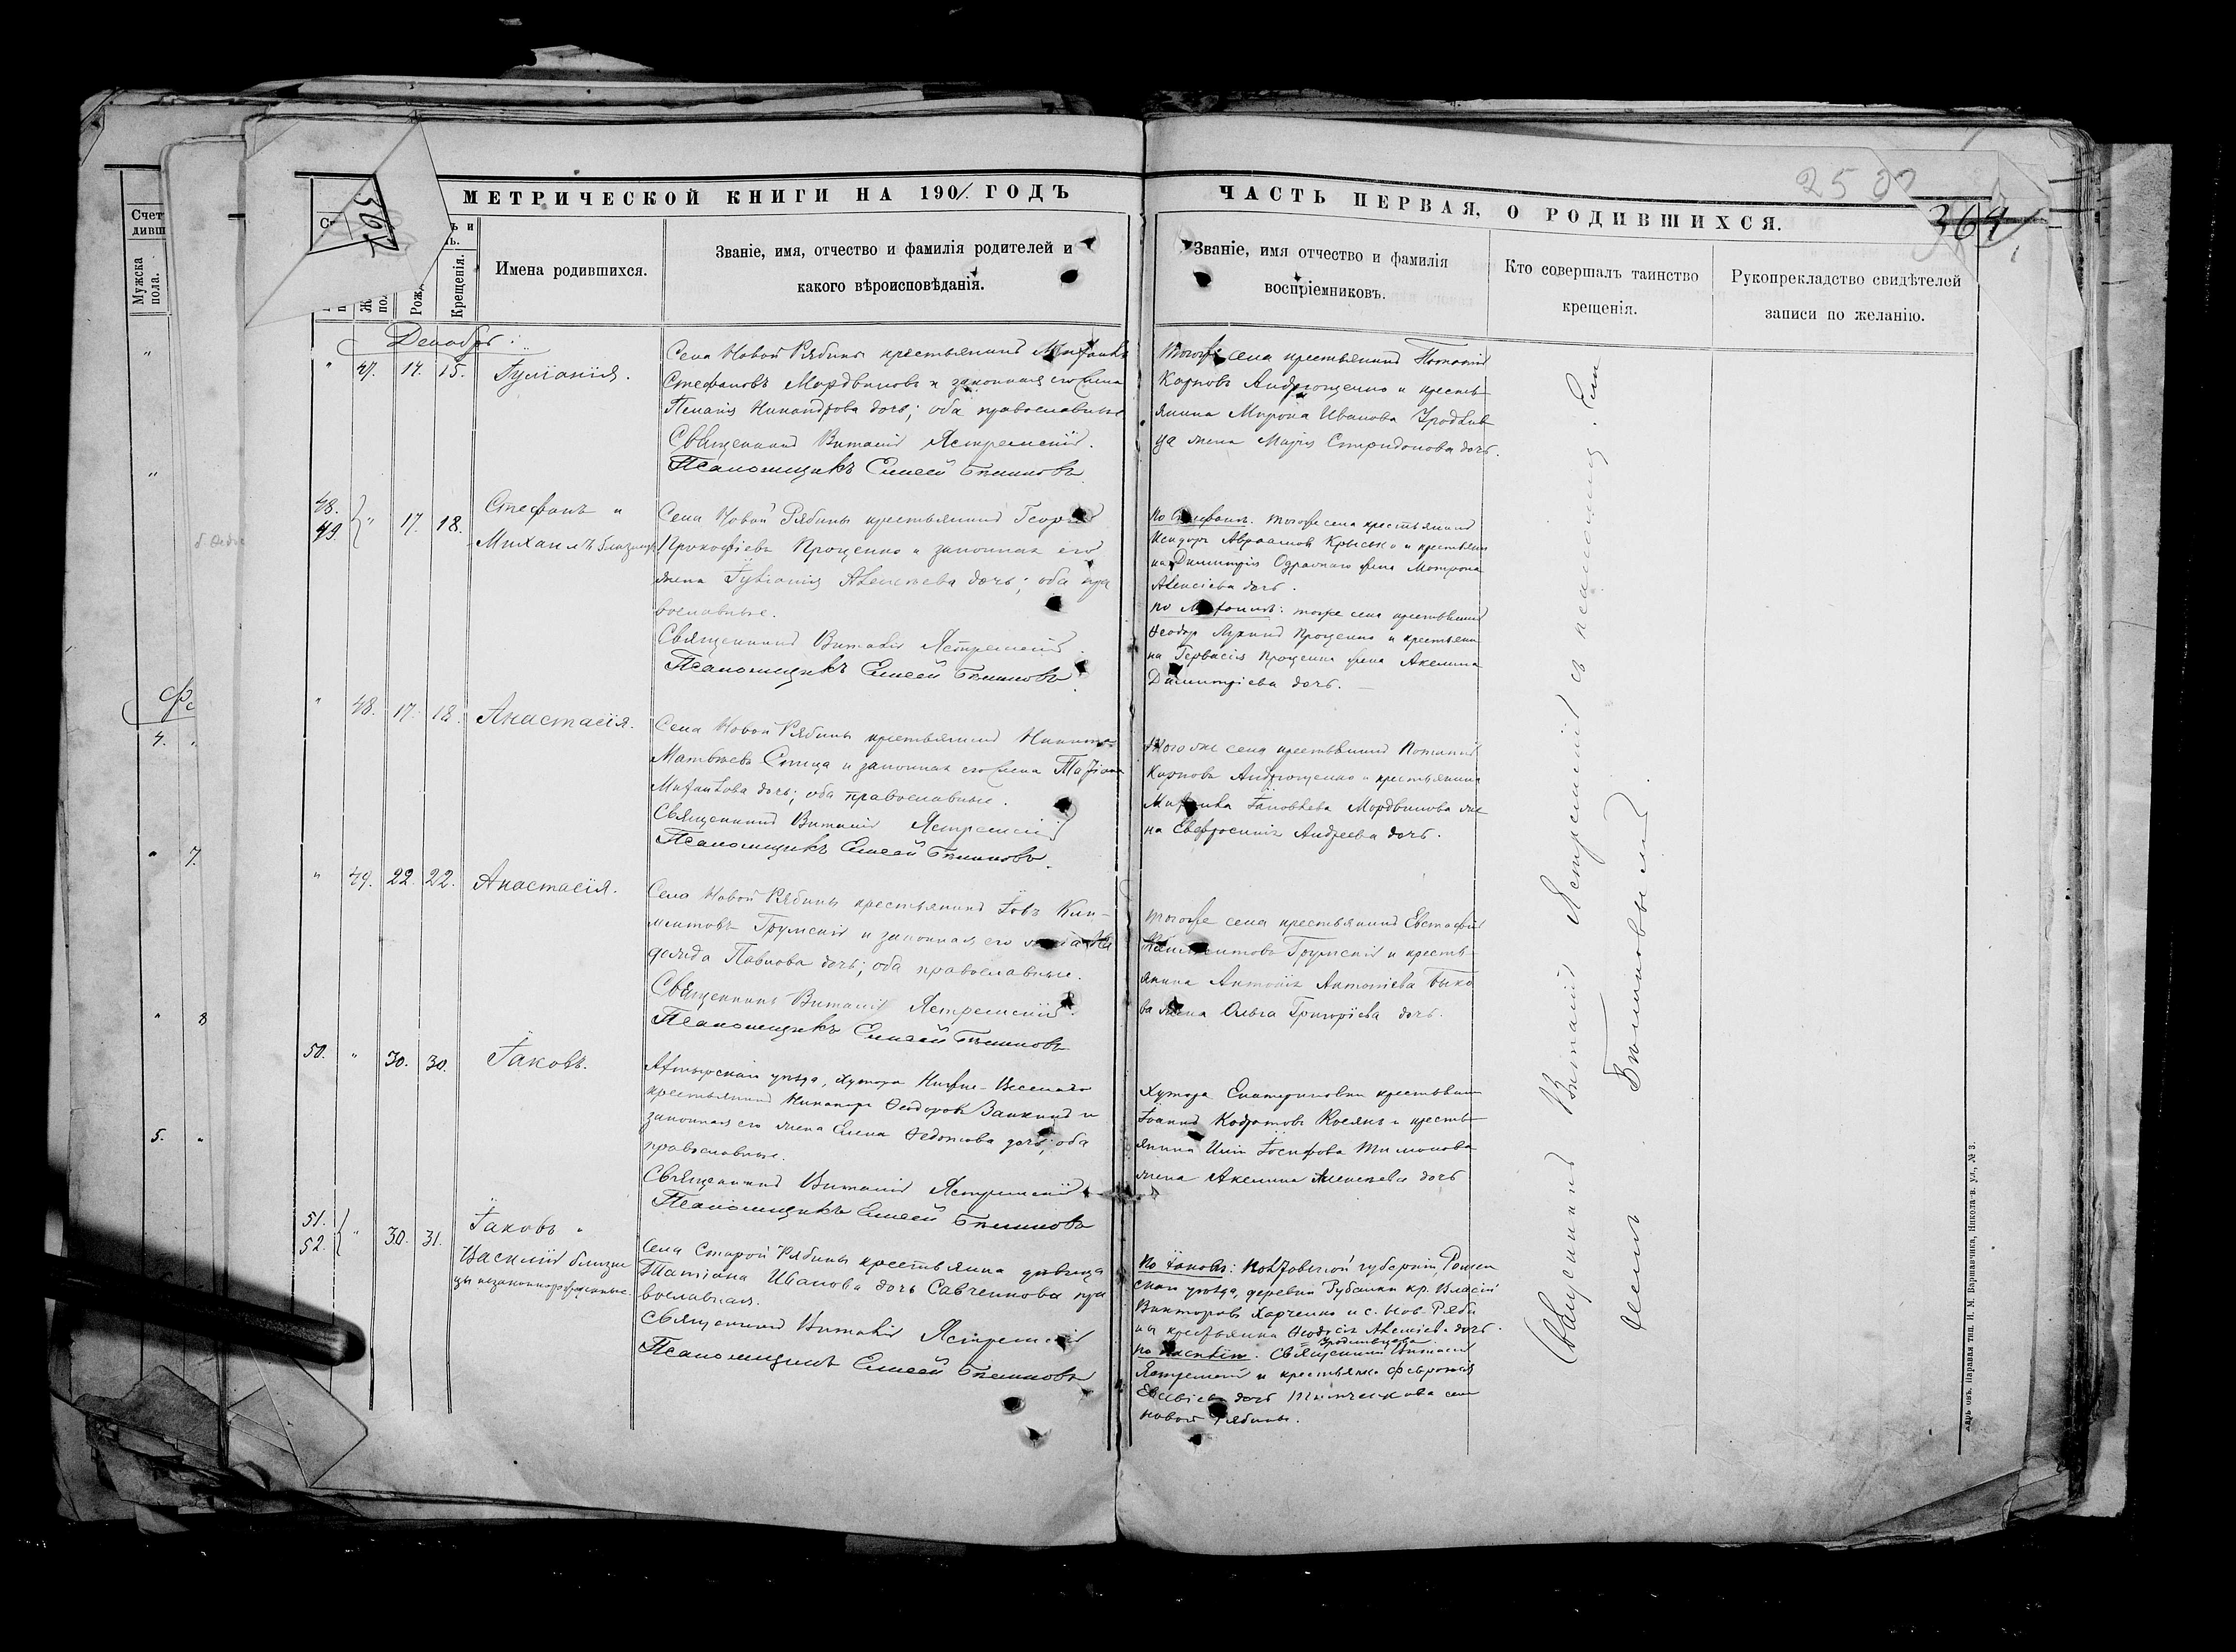 МЕТРИЧЕСКОЙ КНИГИ НА 1901 ГОДЪ
ЧАСТЬ ПЕРВАЯ, О РОДИВШИХСЯ.
364
Счет
дивш
Мужска
пола.
Крещенія.
Имена родившихся.
Званіе, имя, отчество и фамилія родителей и
какого вѣроисповѣданія.
Званіе, имя отчество и фамилія
воспріемниковъ.
Кто совершалъ таинство
крещенія.
Рукоприкладство свидѣтелей
записи по желанію.
Декабрь:
" 47. 14. 15. Іуліанія.
Села Новой Рябины крестьянинъ Михаилъ
Стефановъ Мордвиновъ и законная его жена
Пелагія Никандрова дочь; оба православные
Священникъ Виталій Ястремскій.
Псаломщикъ Елисей Бѣлиновъ
Тогоже села крестьянинъ Потапій
Карповъ Андрющенко и кресть
янина Мирона Иванова
жена Марія Спиридонова дочь.
48. 49. " 17. 18. Стефанъ и
Михаилъ близнецы
Села Новой Рябины крестьянинъ Георгій
Прокофіевъ Проценко и законная его
жена Іуліанія Алексѣева дочь; оба пра
вославные.
Священникъ Виталій Ястремскій.
Псаломщикъ Елисей Бѣлиновъ.
По Стефанѣ: тогоже села крестьянинъ
Исидоръ Авраамовъ Крысько и крестьяни
на Димитрія жена Матрона
Алексіева дочь.
По Михаилѣ: тогоже села крестьянинъ
Ѳеодоръ Проценко и крестьяни
на Гервасія Проценка жена Акелина
Димитріева дочь.
" 48. 17. 18. Анастасія.
Села Новой Рябины крестьянинъ Никита
Матвѣевъ и законная его жена
Михаилова дочь; оба православные.
Священникъ Виталій Ястремскій
Псаломщикъ Елисей Бѣлиновъ.
Того же села крестьянинъ Потапій
Карповъ Андрющенко и крестьянина
Михаила Іаковлева Мордвинова же
на Евфросинія Андреева дочь.
" 49. 22. 22. Анастасія.
Села Новой Рябины крестьянинъ Іовъ Кли-
ментовъ Грумскій и законная его жена На
дежда Павлова дочь; оба православные.
Священникъ Виталій Ястремскій.
Псаломщикъ Елисей Бѣлиновъ
Тогоже села крестьянинъ Евстафій
Климентовъ Грумскій и кресть
янина Антонія Антоніева Быко
ва жена Ольга Григоріева дочь.
50. " 30. 30. Іаковъ.
Ахтырскаго уѣзда, хутора Нижне-Веселаго
крестьянинъ Никаноръ Ѳеодоровъ Заикинъ и
законная его жена Елена Ѳедотова дочь; оба
православные.
Священникъ Виталій Ястремскій
Псаломщикъ Елисей Бѣлиновъ
Хутора Екатериновки крестьянинъ
Іоаннъ Кодратовъ и кресть
янина Іосифова Тимонова
жена Акелина Алексѣева дочь
51. 52. " 30. 31. Іаковъ и
Василій близне
цы незаконнорожденные.
Села Старой Рябины крестьянка дѣвица
Татіана Иванова дочь Савченкова пра
вославная.
Священникъ Виталій Ястремскій
Псаломщикъ Елисей Бѣлиновъ
По Іаковѣ: Полтавской губерніи, Ромен
скаго уѣзда, деревни кр. Власій
Викторовъ Харченко и с. Нов. Ряби
ны крестьянка Ѳеодосія Алексіева дочь
По Василіи: Священникъ Виталій
Ястремскій и крестьянка Февронія
дочь села
Новой Рябины.
Священникъ Виталій Ястремскій съ псаломщ. Ели
сеемъ Бѣлиновымъ.